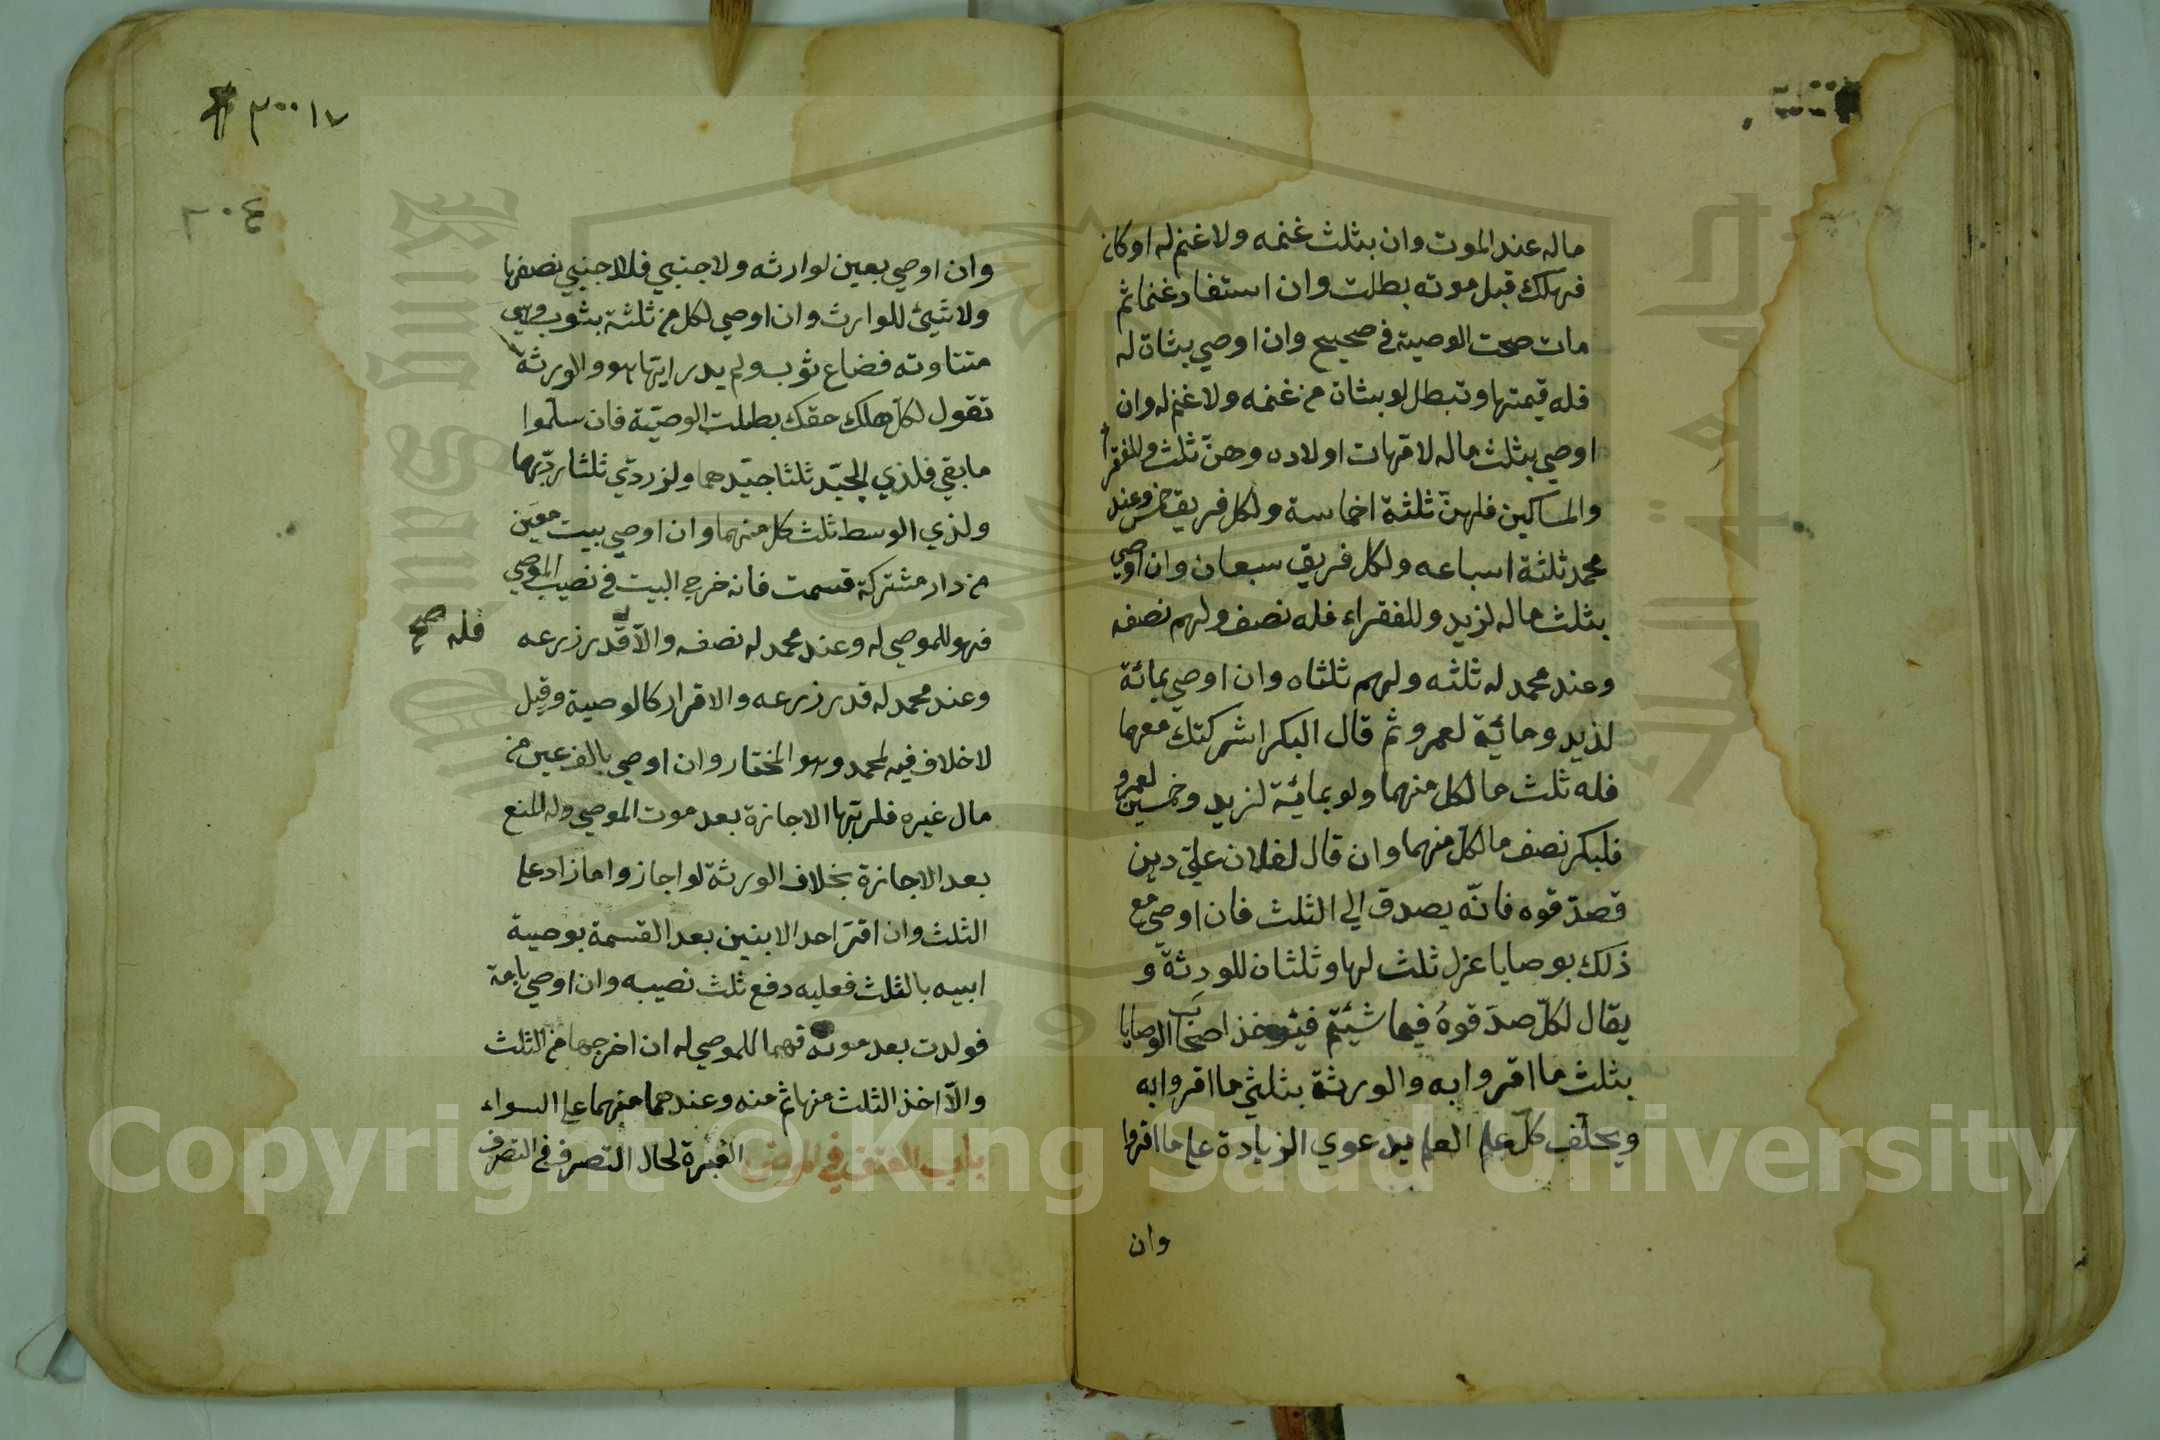 ماله عند الموت وان بثلث غنمه ولا غنم له او كان
فهلك قبل موته بطلت وان استفاد غنما ثم
مات صحت الوصية في صحيح وان اوصي بشاة له
فله قيمتها وتبطل لو بشاة من غنمه ولا غنم له وان
اوصي بثلث ماله لامهات اولاده وهن ثلث وللفقرا
والمساكين فلهن ثلثة اخماسة ولكل فريق خمس وعند
محمد ثلثة اسباعه ولكل فريق سبعان وان اوصي
بثلث ماله لزيد وللفقراء فله نصف ولهم نصفه
وعند محمد له ثلثه ولهم ثلثاه وان اوصي بمائة
لذيد ومائية لعمرو ثم قال البكر اشركتك معهما
فله ثلث ما لكل منهما ولو بمائية لزيد وخمسين لعمرو
فلبكر نصف ما لكل منهما وان قال لفلان علي دين
فصدّقوه فانّه يصدق الي الثلث فان اوصي مع
ذلك بوصايا عزل ثلث لها وثلثان للورثة و
يقال لكلّ صدّقوهُ فيما شيئتم فيئوخذ اصحاب الوصايا
بثلث ما اقروا به والورثة بثلثي ما اقروا به
ويحلّف كلّ علي العلم بدعوي الزيادة علي ما اقروا
وان
٢٠٠١٧
٢٠٤
وان اوصي بعين لوارثه ولاجنبي فللاجنبي نصفها
ولا شيئ للوارث وان اوصي لكل من ثلثة بثوب وهي
متفاوته فضاع ثوب ولم يدر ايتها هو والورثة
تقول لكل هلك حقك بطلت الوصيّة فان سلّموا
ما بقي فلذي الجيّد ثلثا جيّدهما ولذ ردّي ثلثا ردّيهما
ولذي الوسط ثلث كل منهما وان اوصي ببيت معيّن
من دار مشتركة قسمت فانه خرج البيت في نصيب الموصي
فهو للموصي له وعند محمد له نصفه والاّ قدر زرعه
فله صح
وعند محمد له قدر زرعه والاقرار كالوصية وقيل
لا خلاف فيه لمحمد وهو المختار وان اوصي بالف عين من
مال غيره فلربّها الاجازة بعد موت الموصي وله المنع
بعد الاجازة بخلاف الورثة لو اجازوا ما زاد علي
الثلث وان اقرّ احد الابنين بعد القسمة بوصية
ابيه بالثلث فعليه دفع ثلث نصيبه وان اوصي بامة
فولدت بعد موته فهما للموصي له ان اخرجها من الثلث
والاّ اخذ الثلث منها ثم منه وعندهما منهما علي السواء
باب العتق في المرض العبرة لحال التصرف في التصرف
Copyright © King Saud University
King Saud University
1957